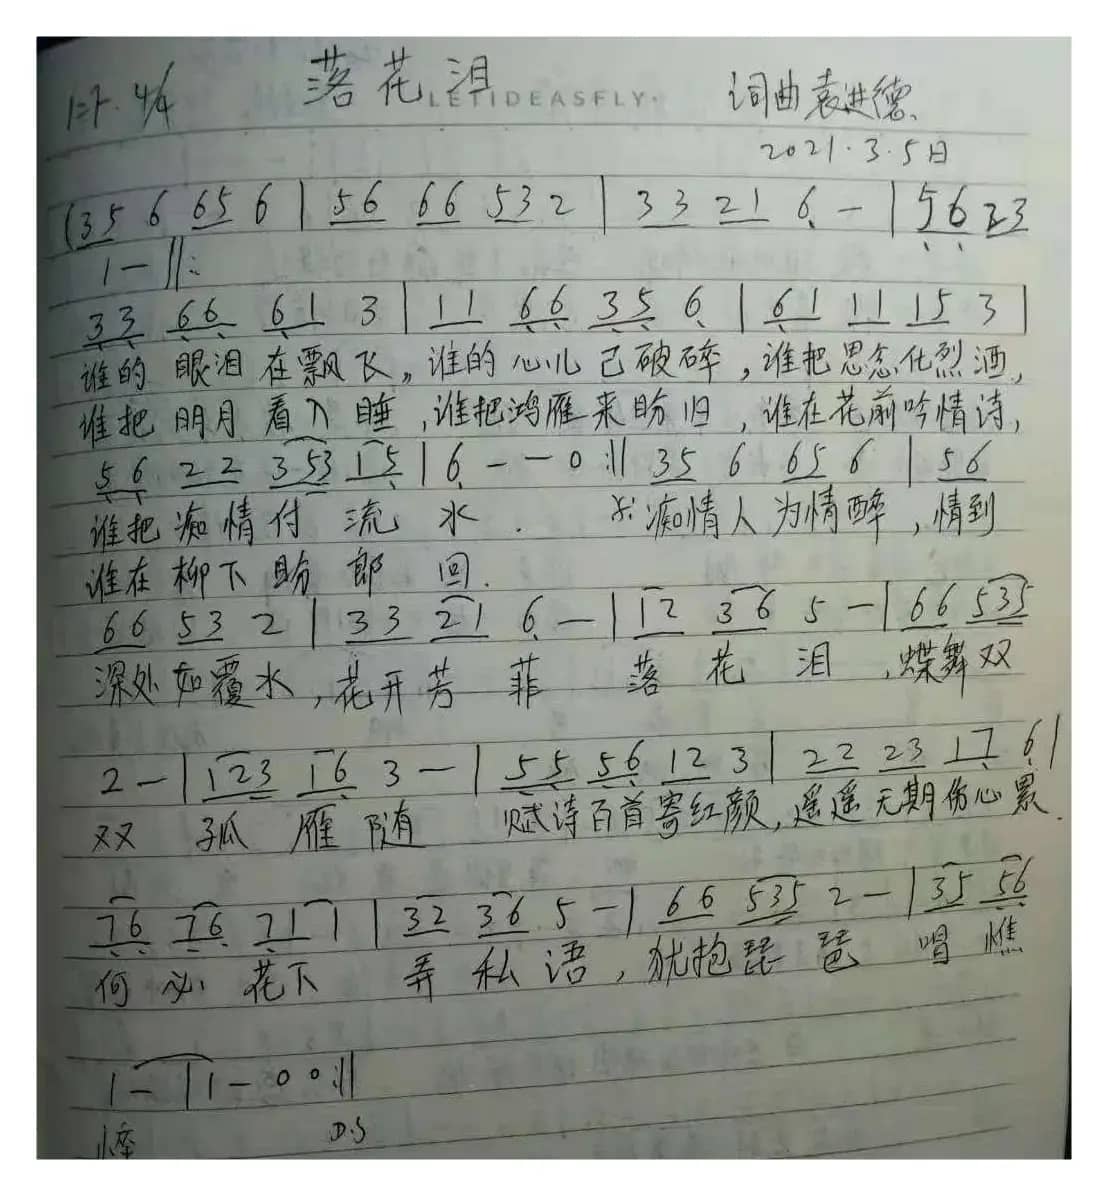 落花泪
LETIDEASFLY.
1=F. 4/4
词曲袁进德
2021.3.5日
(35 6 65 6 | 56 66 53 2 | 33 21 6 - | 56 23
1 - ||:
33 66 61 3 | 11 66 35 6 | 61 11 15 3 |
谁的 眼泪 在飘飞,谁的心儿已破碎,谁把思念化烈酒,
谁把 明月 看入睡,谁把鸿雁来盼归,谁在花前吟情诗,
56 22 353 15 | 6 - - 0 :|| 35 6 65 6 | 56
谁把痴情付流水. 痴情人为情醉,情到
谁在柳下盼郎回.
66 53 2 | 33 21 6 - | 12 36 5 - | 66 535
深处如覆水,花开芳菲 落花泪,蝶舞双
2 - | 123 16 3 - | 55 56 12 3 | 22 23 17 6 |
双 孤雁随 赋诗百首寄红颜,遥遥无期伤心累.
76 76 71 1 | 32 36 5 - | 66 535 2 - | 35 56
何必花下弄私语,犹抱琵琶唱憔
1 - | 1 - 0 0 :||
悴 D.S